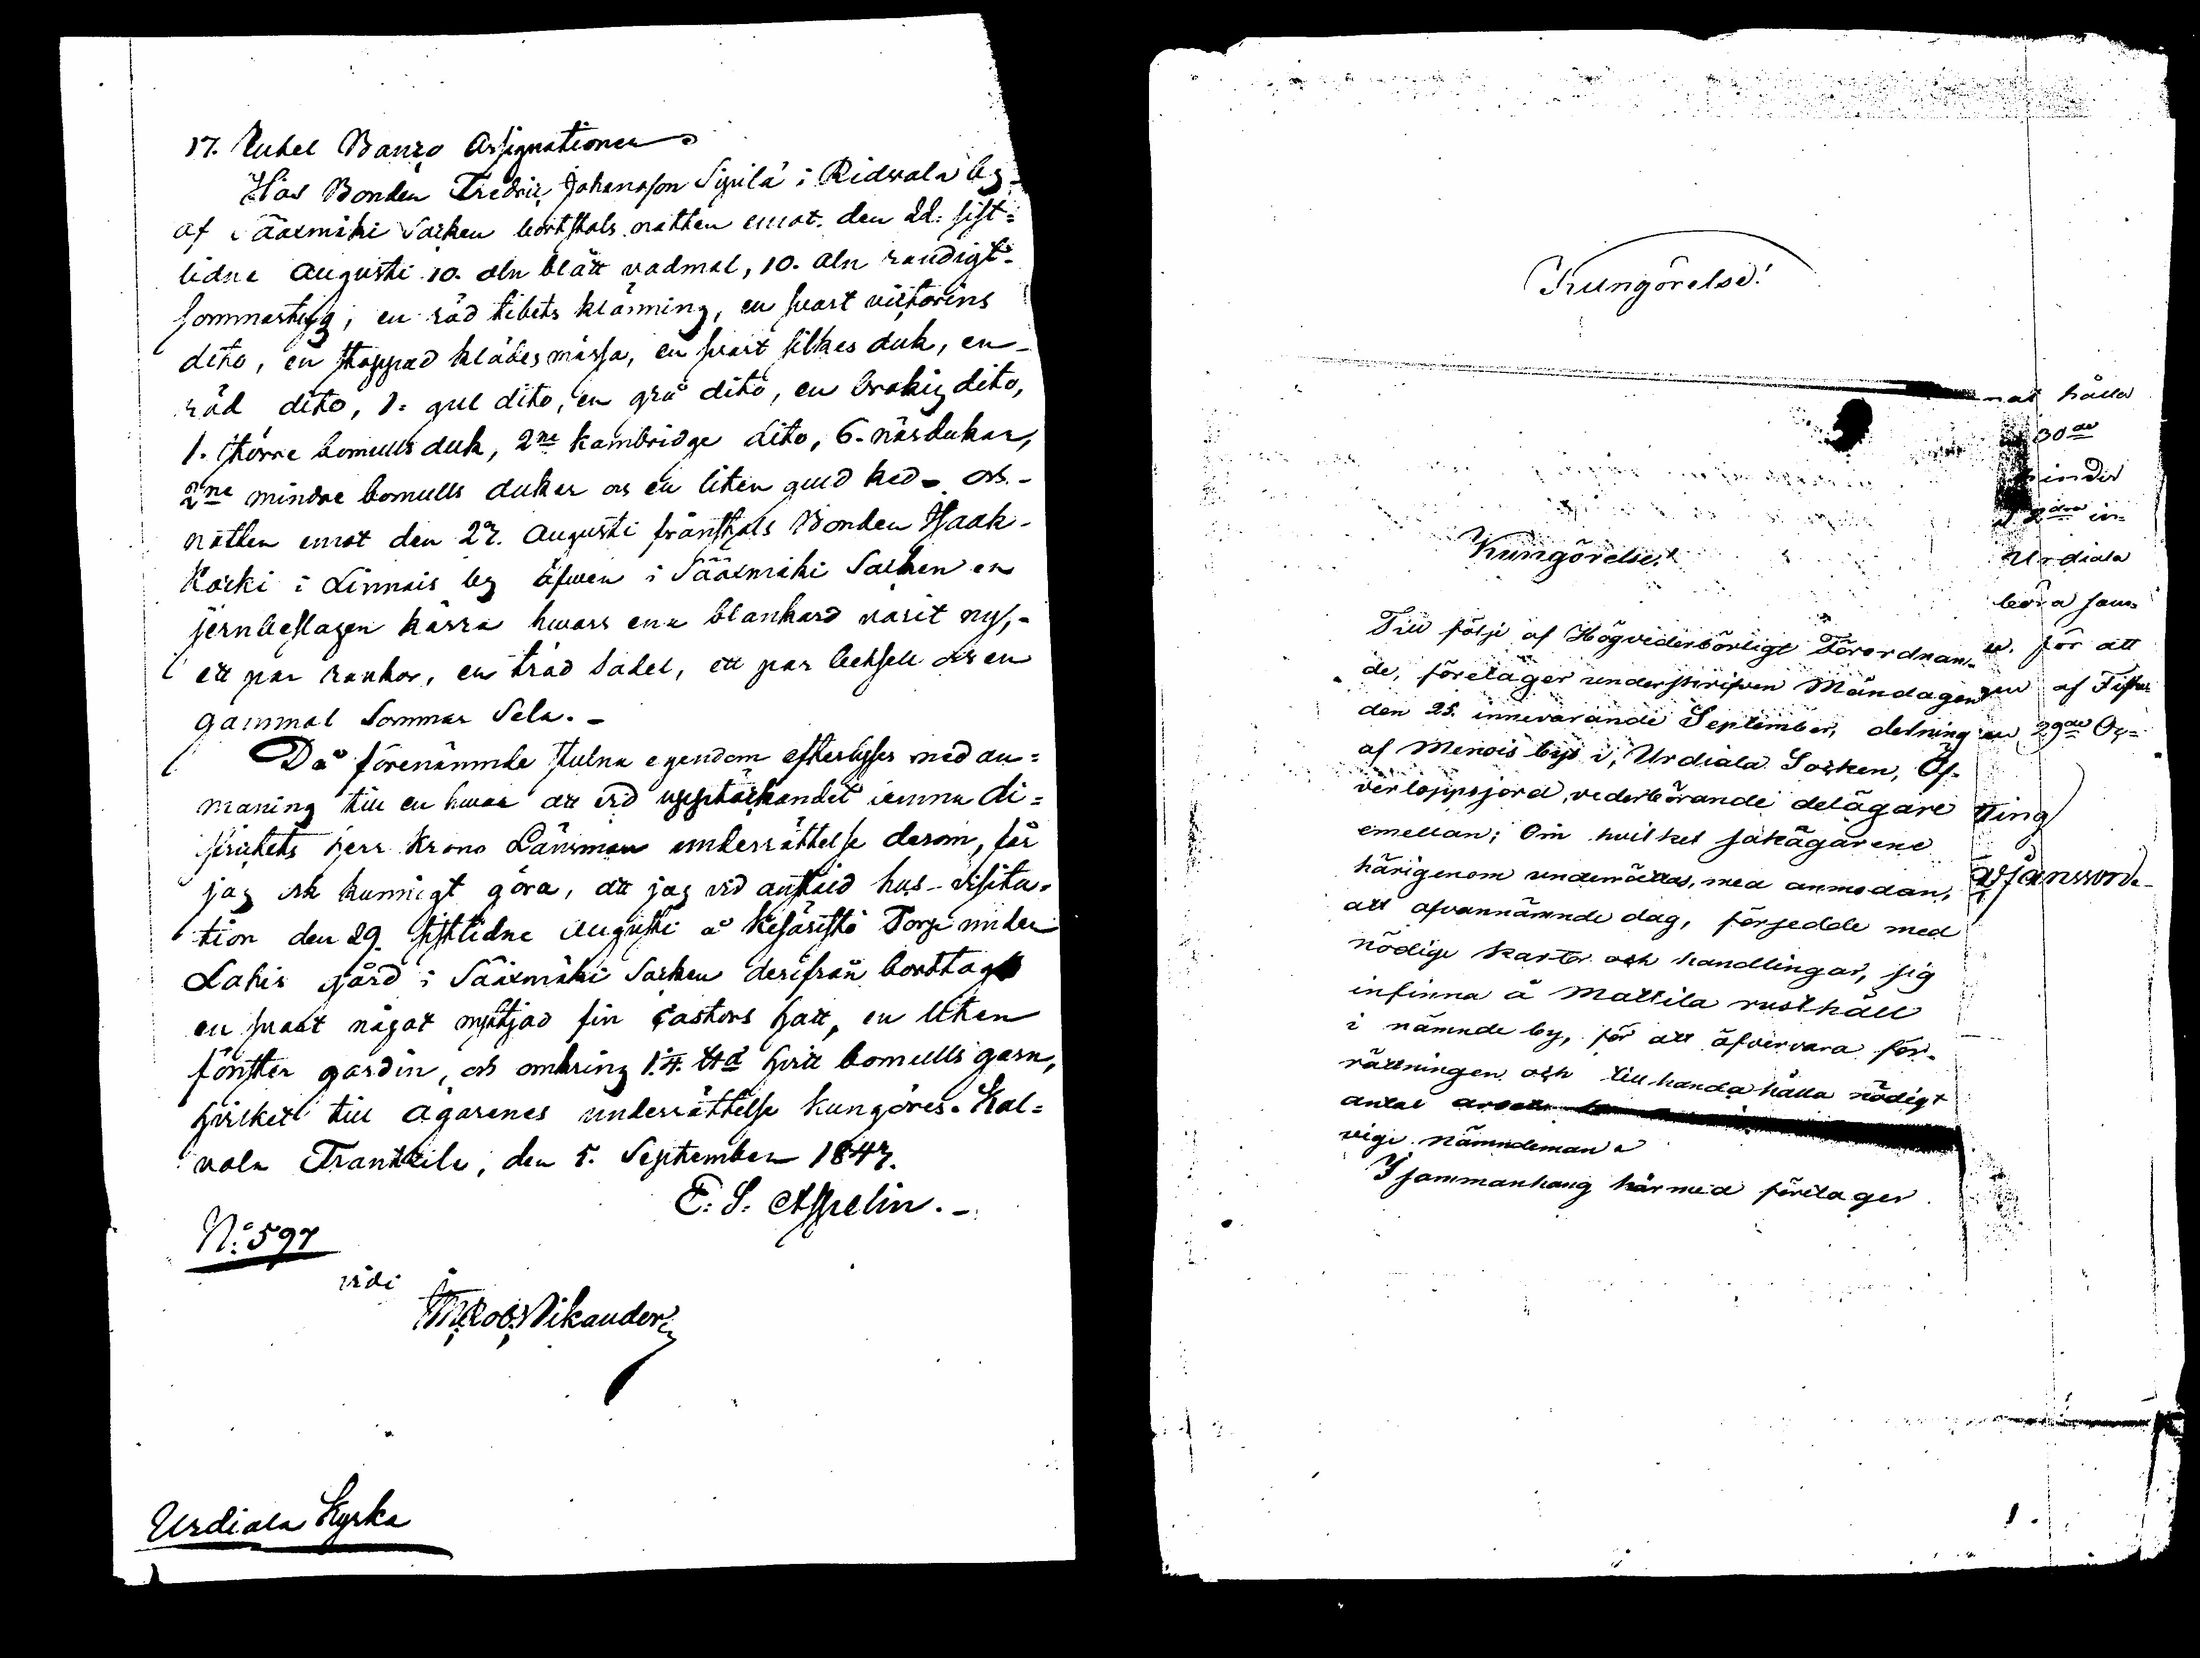 17. Rubel Banco Assignationer
Hos Bonden Fredric Johansson Sipilä i Ridvala by
af Sääxmäki Socken bortstals natten emot den 22. sist=
lidne Augusti 10. aln blått vadmal, 10. aln randigt
sommartyg, en röd tibets klänning, en svart victorins
dito, en stoppad klädesmössa, en svart silkes duk, en
röd dito, 1. gul dito, en grå dito, en brokig dito,
1. större bomulls duk, 2ne kambridge dito, 6. näsdukar,
2ne mindre bomulls dukar och en liten guld ked och
natten emot den 27. Augusti frånstals Bonden Haak-
Korki i Linnais by äfwen i Sääxmäki Socken en
jernbeslagen kärra hwars ena blankard varit ny,
ett par rankor, en träd Sadel, ett par betsell och en
gammal Sommar Sela. -
Då förenämnde stulna egendom efterlyses med an=
maning till en hwar att vid upptäckandet lemna di=
strictets herr Krono Länsman underrättelse derom, får
jag ock kunnigt göra, att jag vid anställd hus-visita=
tion den 29. sistlidne Augusti å Kesäristö Torp under
Lahis gård i Sääxmäki Socken derifrån borttagit
en svart något nyttjad fin Castors hatt, en liten
fönster gardin, och omkring 1.4. ℔d hvitt bomulls garn,
hvilket till ägarenes underrättelse kungöres. Kal=
vola Franttila, den 5. September 1847.
E. S. Appelin. -
No. 597
vidi
M. Rob. Wikander
Urdiala Kyrka
Kungörelse!
Kungörelse!
Till följe af Högvederbörligt Förordnan=
de, företager underskrifven Måndagen
den 25. innevarande September, delning
af Menois bys i, Urdiala Socken, Öf-
verloppsjord, vederbörande delägare
emellan; Om hvilket sakägarene
härigenom underrättas, med anmodan,
att ofvannämnde dag, försedde med
nödige kartor och handlingar, sig
infinna å Mattila rusthåll
i nämnde by, för att öfvervara för-
rättningen och tillhanda hålla nödigt
antal
vige nämndeman.
I sammanhang härmed företager
hålla
30de
hinder
2dra in-
Urdiala
böra sam-
för att
af
29de
Ting
1.